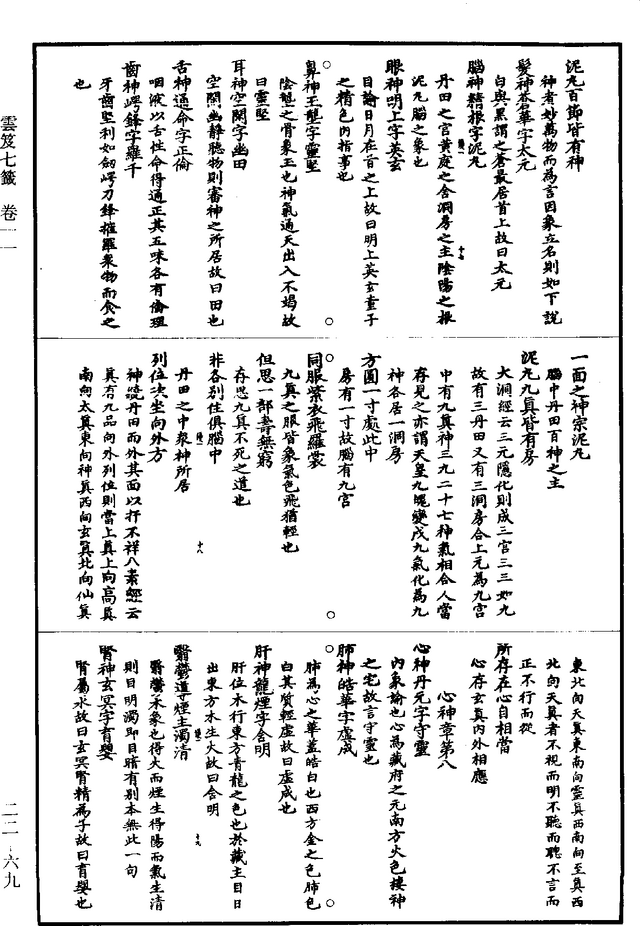 泥丸百節皆有神
神者妙萬物而為言因象立名則如下說
髮神蒼華字太元
白與黑謂之蒼最居首上故曰太元
腦神精根字泥丸
丹田之宮黃庭之舍洞房之主陰陽之根
泥丸腦之象也
眼神明上字英玄
目諭日月在首之上故曰明上英玄童子
之精色內指事也
鼻神玉壟字靈堅
陰壟之骨象玉也神氣通天出入不竭故
曰靈堅
耳神空閑字幽田
空閑幽靜聽物則審神之所居故曰田也
舌神通命字正倫
咽液以舌性命得通正其五味各有倫理
齒神崿鋒字羅千
牙齒堅利如劒崿刀鋒摧羅衆物而食之
也
一面之神宗泥丸
腦中丹田百神之主
泥丸九真皆有房
大洞經云三元隱化則成三宮三三如九
故有三丹田又有三洞房合上元為九宮
中有九真神三九二十七神氣相合人當
存見之亦謂天皇九魄變成九氣化為九
神各居一洞房
方圓一寸處此中
房有一寸故腦有九宮
同服紫衣飛羅裳
九真之服皆象氣色飛猶輕也
但思一部壽無窮
存思九真不死之道也
非各別住俱腦中
丹田之中衆神所居
列位次坐向外方
神統丹田而外其面以扞不祥八素經云
真有九品向外列位則當上真上向高真
南向太真東向神真西向玄真北向仙真
東北向天真東南向靈真西南向至真西
北向天真者不視而明不聽而聰不言而
正不行而從
所存在心自相當
心存玄真內外相應
心神章第八
心神丹元字守靈
內象諭也心為藏府之元南方火色棲神
之宅故言守靈也
肺神皓華字虛成
肺為心之華蓋皓白也西方金之色肺色
白其質輕虛故曰虛成也
肝神龍煙字含明
肝位木行東方青龍之色也於藏主目日
出東方木生火故曰含明
翳鬱導煙主濁清
翳鬱木象也得火而煙生得陽而氣生清
則目明濁即目暗有別本無此一句
腎神玄冥字育嬰
腎屬水故曰玄冥腎精為子故曰育嬰也
雲笈七籤 卷一一
二二-六九